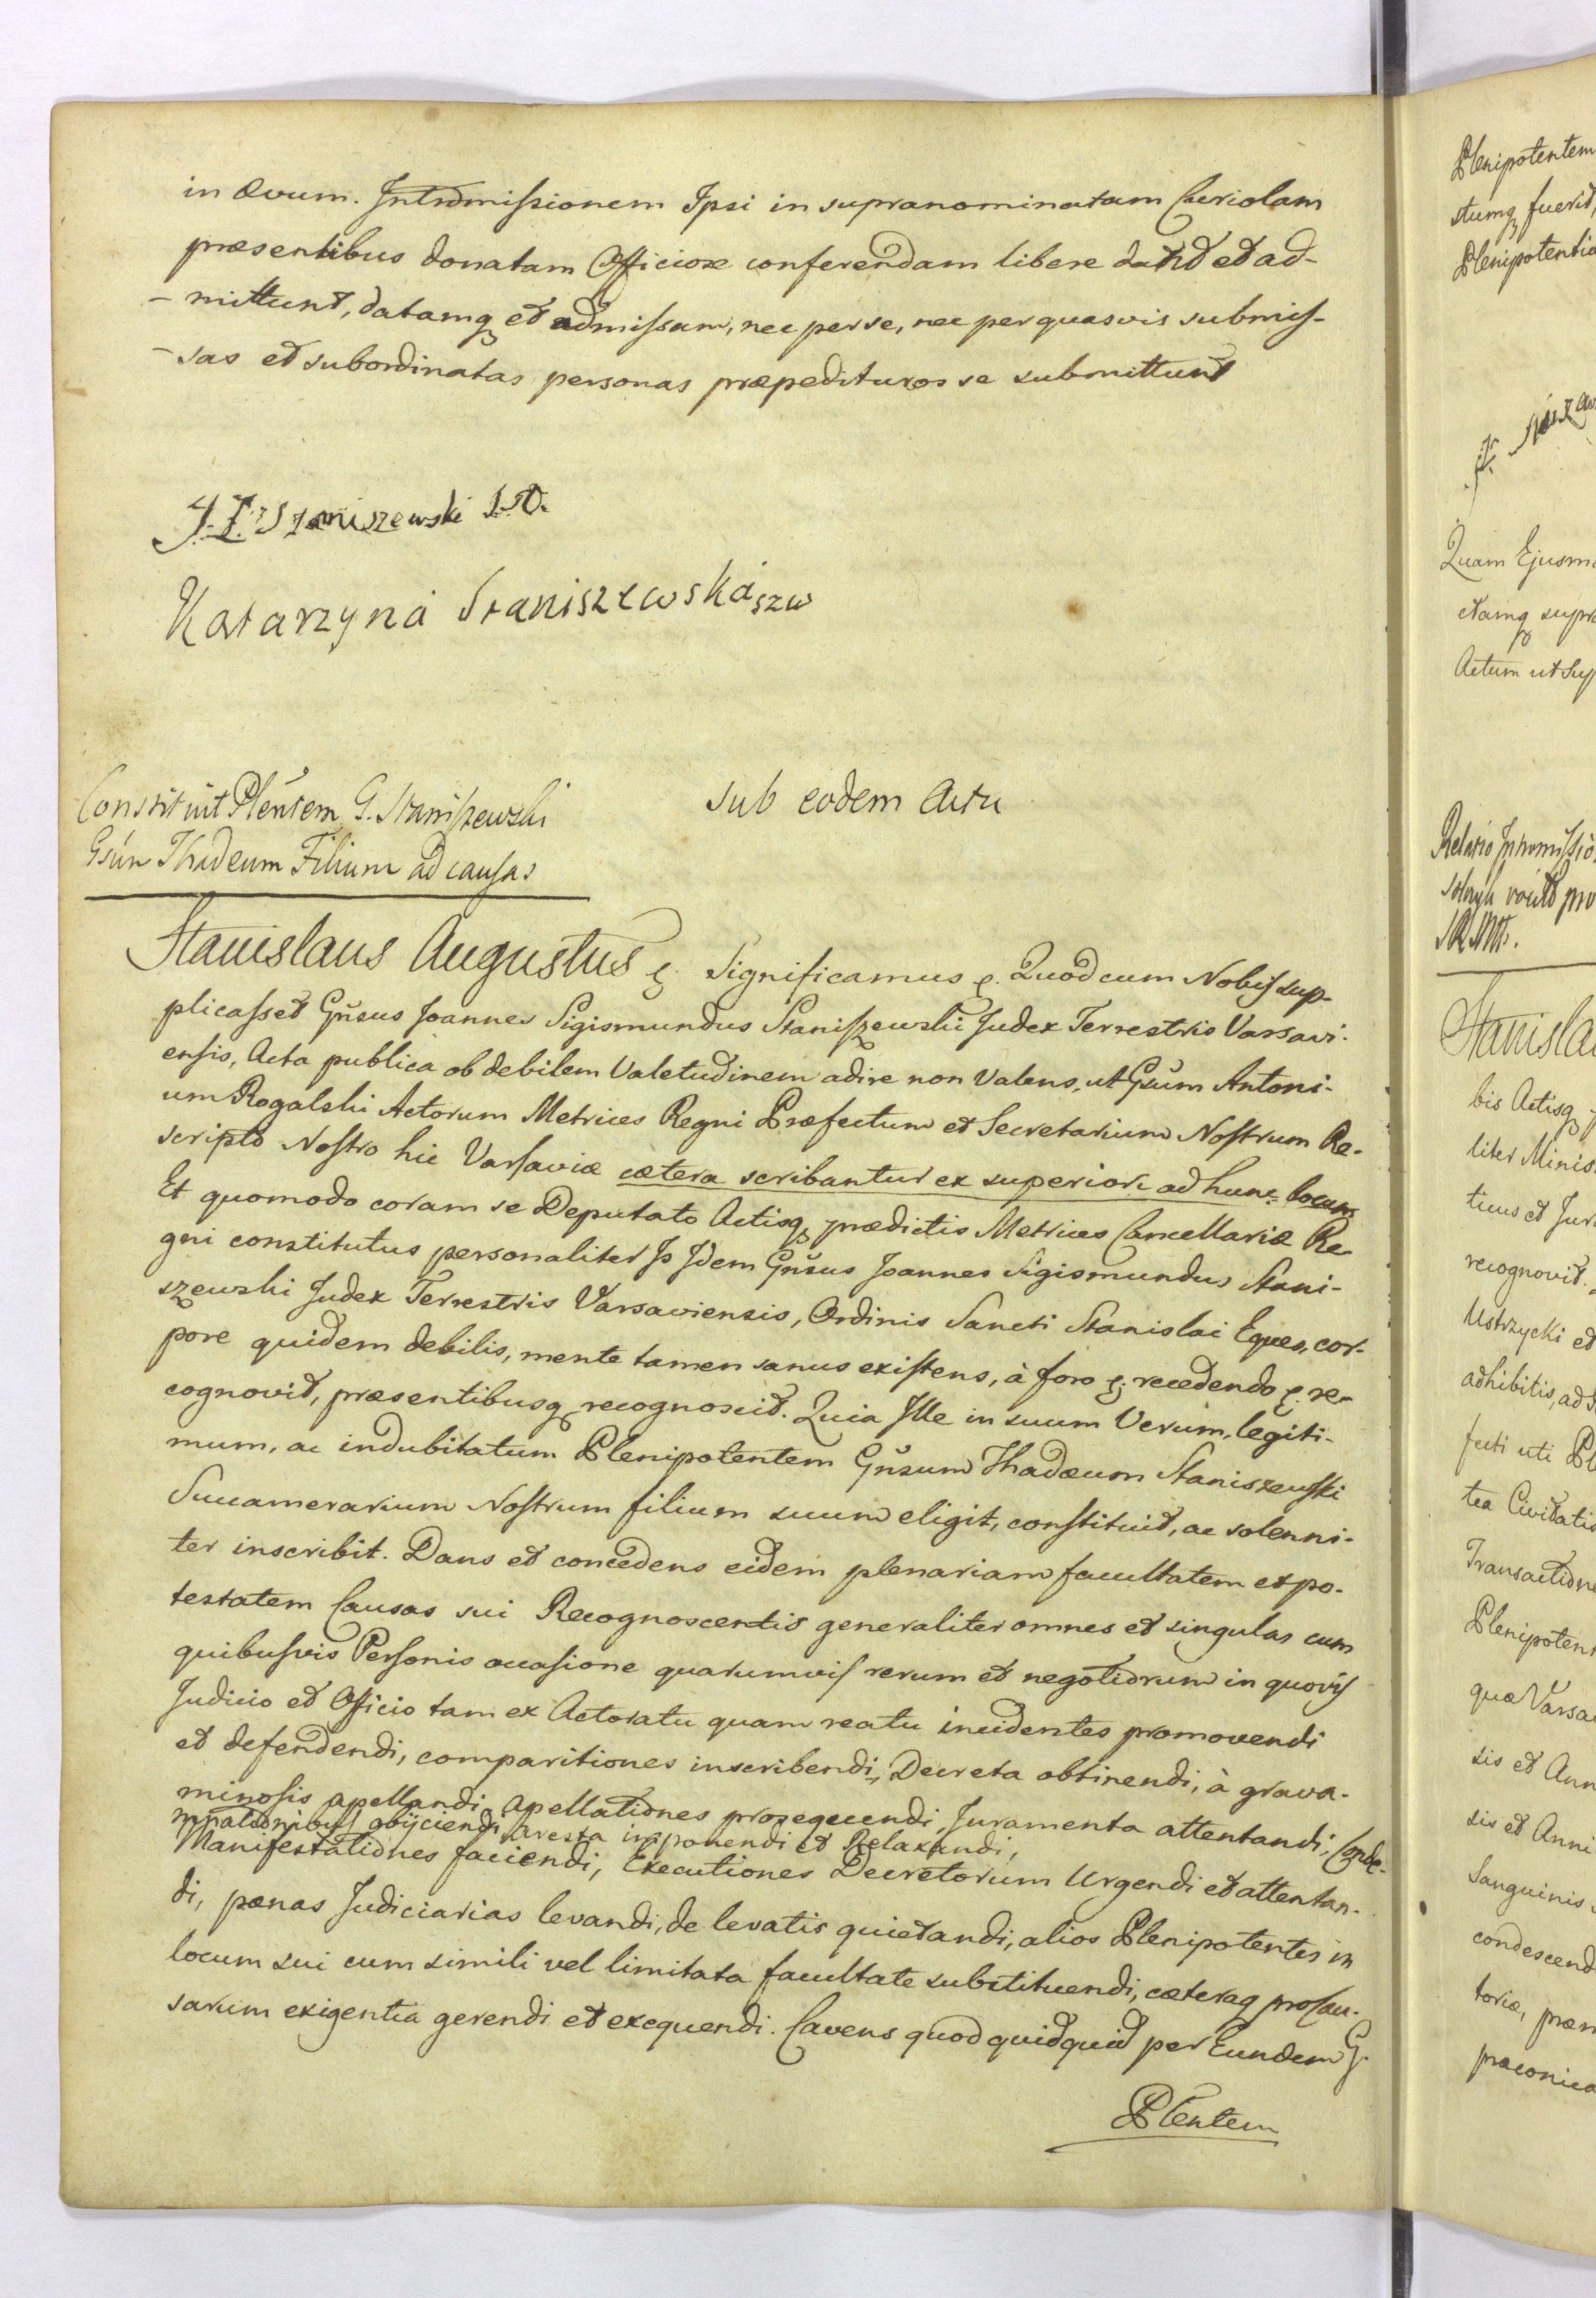 in ævum. Intromissionem Ipsi in supranominatam Curiolam
præsentibus donatam Officiose conferendam libere dant et ad-
- mittunt, datamq et admissam, nec per se, nec per quasvis submis-
- sas et subordinatas personas præpedituros se submittunt
J. Z. Staniszewski S.W.
Katarzyna Staniszewska szw
Constituit Plentem G. Staniszewski
Gsum Thadeum Filium ad causas
Sub eodem Actu
Stanislaus Augustus Significamus Quod cum Nobis sup-
plicasset Gnsus Joannes Sigismundus Staniszewski Judex Terrestris Varsavi-
ensis, Acta publica ob debilem Valetudinem adire non Valens, ut Gsum Antoni-
um Rogalski Actorum Metrices Regni Præfectum et Secretarium Nostrum Re-
scripto Nostro hic Varsaviæ cætera scribantur ex superiori ad hunc locum
Et quomodo coram se Deputato Actisq prædictis Metrices Cancellariæ Re-
gni constitutus personaliter Idem Gnsus Joannes Sigismundus Stani-
szewski Judex Terrestris Varsaviensis, Ordinis Sancti Stanislai Eques, cor-
pore quidem debilis, mente tamen sanus existens, à foro recedendo re-
cognovit, præsentibusq recognoscit. Quia Ille in suum Verum, legiti-
mum, ac indubitatum Plenipotentem Gnsum Thadæum Staniszewski
Succamerarium Nostrum filium suum eligit, constituit, ac solenni-
ter inscribit. Dans et concedens eidem plenariam facultatem et po-
testatem Causas sui Recognoscentis generaliter omnes et singulas cum
quibusvis Personis occasione quarumvis rerum et negotiorum in quovis
Judicio et Officio tam ex Actoratu quam reatu incidentes promovendi
et defendendi, comparitiones inscribendi, Decreta obtinendi, à grava-
minosis apellandi, apellationes prosequendi, Juramenta attentandi, Conde-
mnationibus objiciendi Aresta imponendi et Relaxandi,
Manifestationes faciendi, Executiones Decretorum Urgendi et attentan-
di, pænas Judiciarias levandi, de levatis quietandi, alios Plenipotentes in
locum sui cum simili vel limitata facultate substituendi, cæteraq pro Cau-
sarum exigentia gerendi et exequendi. Cavens quod quidquid per Eundem G.
Plentem
Plenipotentem
stumq fuerit,
Plenipotentia
Quam Ejusm
ctamq supra
Actum ut Sup
Relatio Intromissio
Stanisla
bis Actisq
liter Minis
ticus et Jur
recognovit.
Ustrzycki et
adhibitis, ad
fecti uti Pl
tea Civitatis
Transactione
Plenipotent
quæ Varsa
sis et Ann
sis et Anni
Sanguinis
condescend
toriæ, præm
præconica